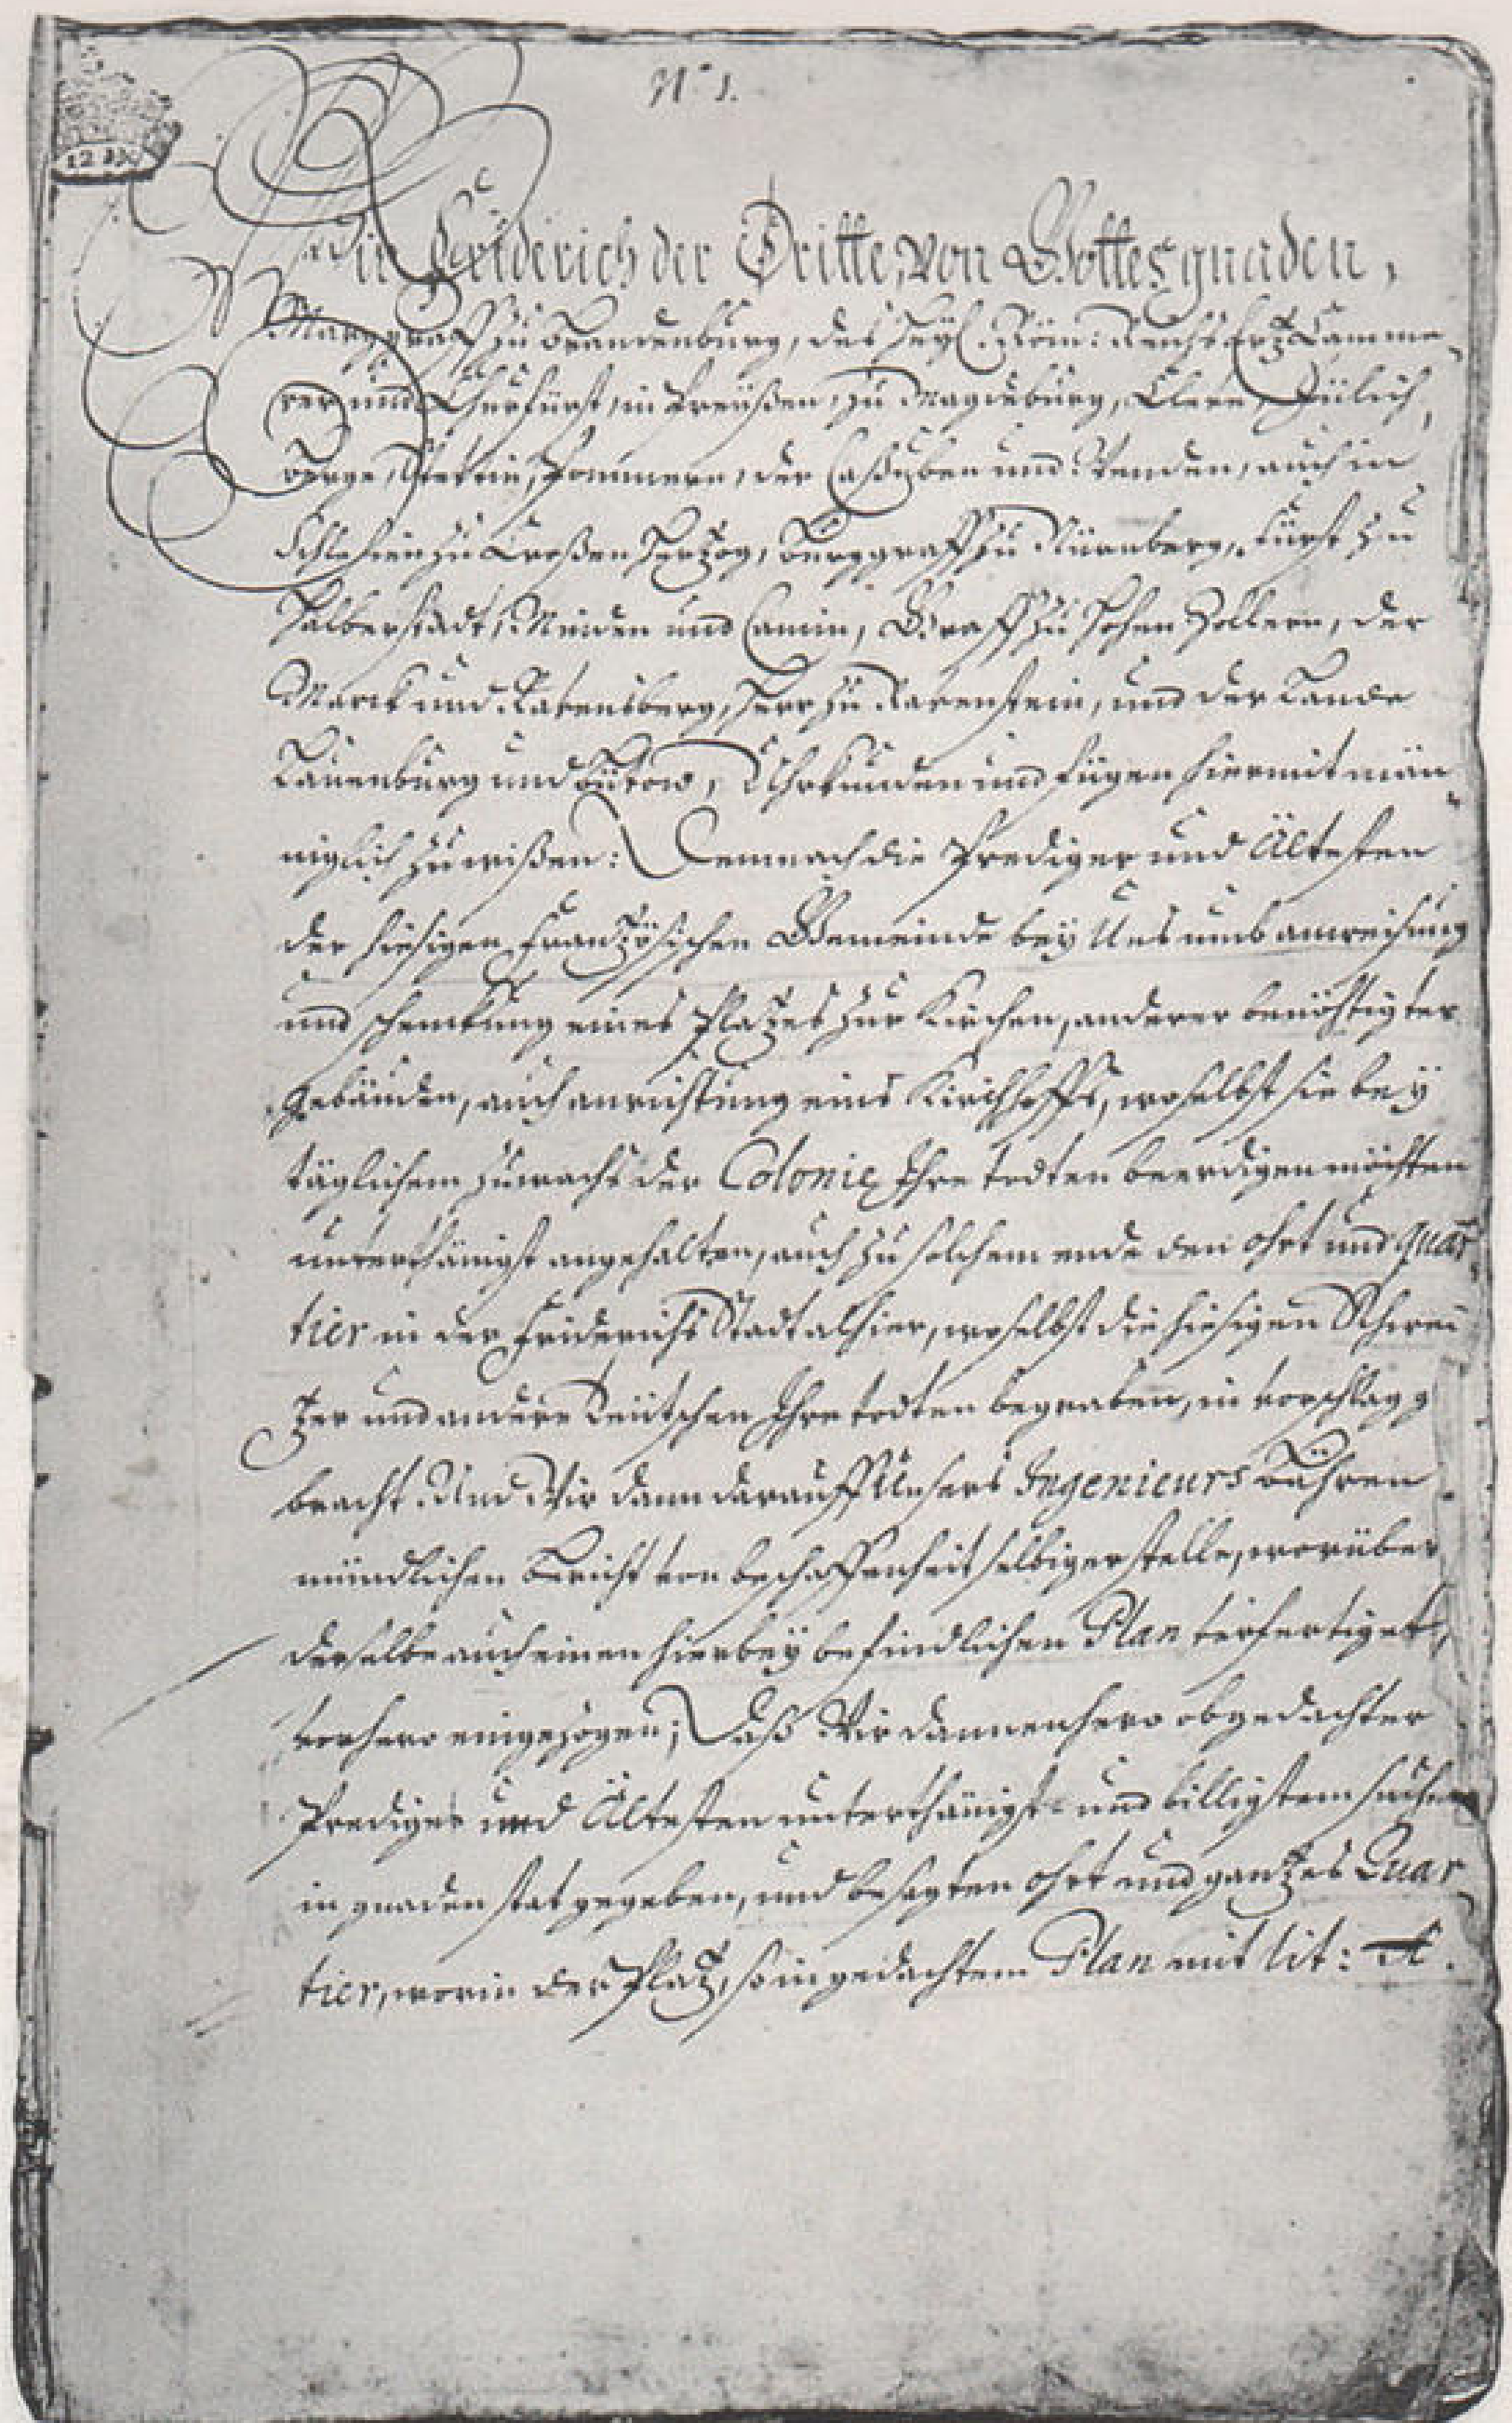 N° 1.
Wir Friderich der Dritte, von Gottes gnaden,
Marggraff zu Brandenburg, des Heyl. Röm: Reichs Ertz Camme-
rer und Churfürst, in Preüßen, zu Magdeburg, Cleve, Jülich,
Berge, Stettin, Pommern, der Caßuben und Wenden, auch in
Schlesien zu Croßen Hertzog, Burggraff zu Nürnberg, Fürst zu
Halberstadt, Minden und Camin, Graff zu Hohen Zollern, der
Marck und Ravensberg, Herr zu Ravenstein, und der Lande
Lauenburg und Bütow, Uhrkunden und fügen hiermit män-
niglich zu wißen: Demnach die Prediger und Ältesten
der hiesigen Frantzösischen Gemeinde bey Uns umb anweisung
und schenckung eines Platzes zur Kirchen, anderer benöhtigter
gebäuden, auch anrichtung eines Kirchhoffs, woselbst sie bey
täglichem zuwachs der Colonie Ihre todten beerdigen möchten
unterthänigst angehalten, auch zu solchem ende den ohrt und quar-
tier in der Friderichs Stadt alhier, woselbst die hiesigen Schwei-
tzer und andere Teütschen Ihre todten begraben, in vorschlag g
bracht. Und Wir dann darauff Unsers Ingenieurs Bähren
mündlichen Bericht von beschaffenheit selbiger stelle, worüber
derselbe auch einen hierbey befindlichen Plan verfertiget,
vorhero eingezogen; Daß Wir dannenhero obgedachter
Prediger und Ältesten unterthänigst- und billigstem suchen
in gnaden stat gegeben, und besagten ohrt und gantzes Quar-
tier, worin der Platz, so in gedachtem Plan mit lit: A.